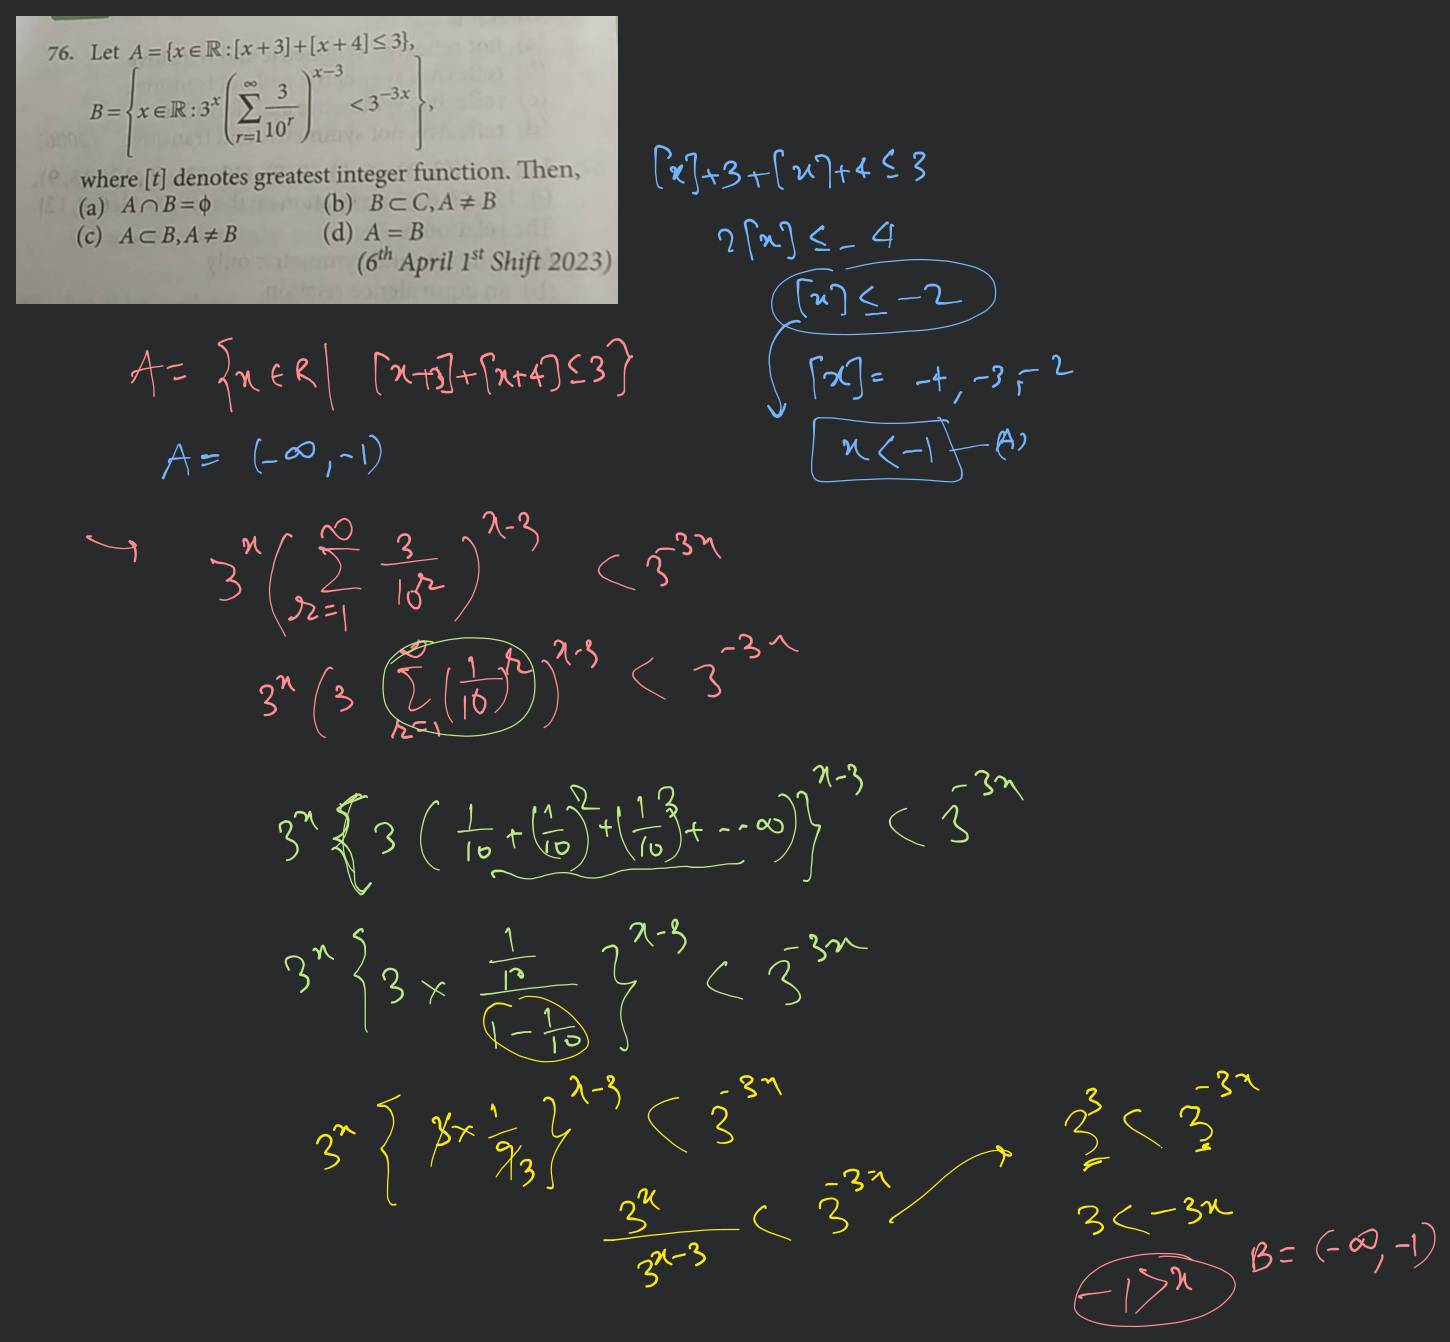 76. Let A = {x ∈ ℝ : [x+3] + [x+4] ≤ 3},
B = {x ∈ ℝ : 3^x (∑_{r=1}^{∞} 3/10^r)^{x−3} < 3^{−3x}},
where [t] denotes greatest integer function. Then,
(a) A ∩ B = ϕ (b) B ⊂ C, A ≠ B
(c) A ⊂ B, A ≠ B (d) A = B
(6th April 1st Shift 2023)
[x]+3+[x]+4 ≤ 3
2[x] ≤ -4
[x] ≤ -2
[x] = -4, -3, -2
x < -1 — (A)
A = {x ∈ R | [x+3]+[x+4] ≤ 3}
A = (-∞, -1)
→ 3^x (∑_{r=1}^{∞} 3/10^r)^{x-3} < 3^{-3x}
3^x (3 ∑_{r=1}^{∞} (1/10)^r)^{x-3} < 3^{-3x}
3^x {3 (1/10 + (1/10)^2 + (1/10)^3 + --- ∞)}^{x-3} < 3^{-3x}
3^x {3 × (1/10)/(1 - 1/10)}^{x-3} < 3^{-3x}
3^x {3 × 1/9 3}^{x-3} < 3^{-3x}
3^x/3^{x-3} < 3^{-3x}
3^3 < 3^{-3x}
3 < -3x
-1 > x
B = (-∞, -1)